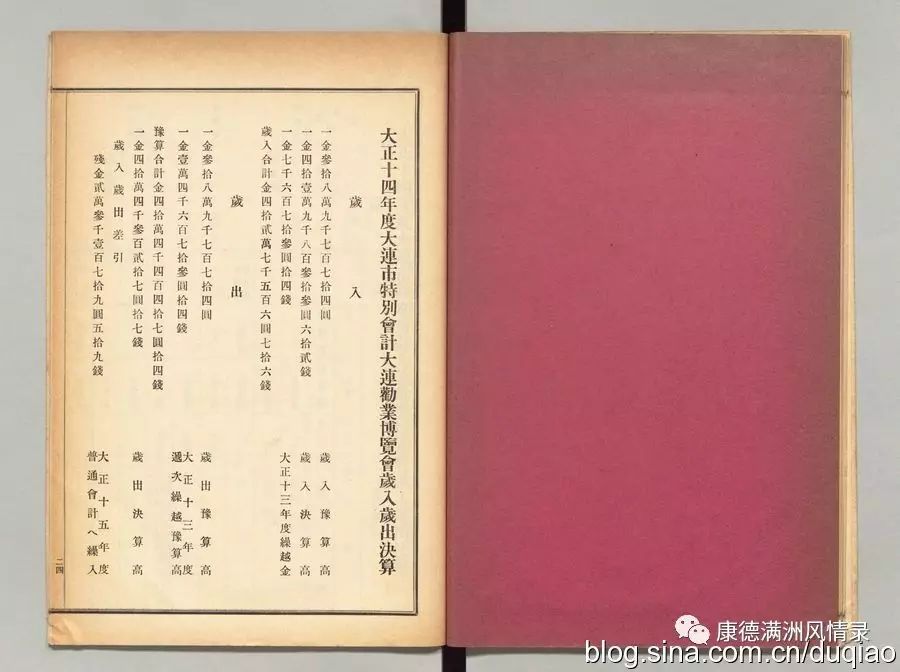 大正十四年度大連市特別會計大連勸業博覽會歲入歲出決算
歲入
一金參拾八萬九千七百七拾四圓 歲入豫算高
一金四拾壹萬九千八百參拾參圓六拾貳錢 歲入決算高
一金七千六百七拾參圓拾四錢 大正十三年度繰越金
歲入合計金四拾貳萬七千五百六圓七拾六錢
歲出
一金參拾八萬九千七百七拾四圓 歲出豫算高
一金壹萬四千六百七拾參圓拾四錢 大正十三年度遞次繰越豫算高
豫算合計金四拾萬四千四百四拾七圓拾四錢
一金四拾萬四千參百貳拾七圓拾七錢 歲出決算高
歲入歲出差引
殘金貳萬參千壹百七拾九圓五拾九錢 大正十五年度普通會計ヘ繰入
二四
康德满洲风情录
blog.sina.com.cn/duqiao